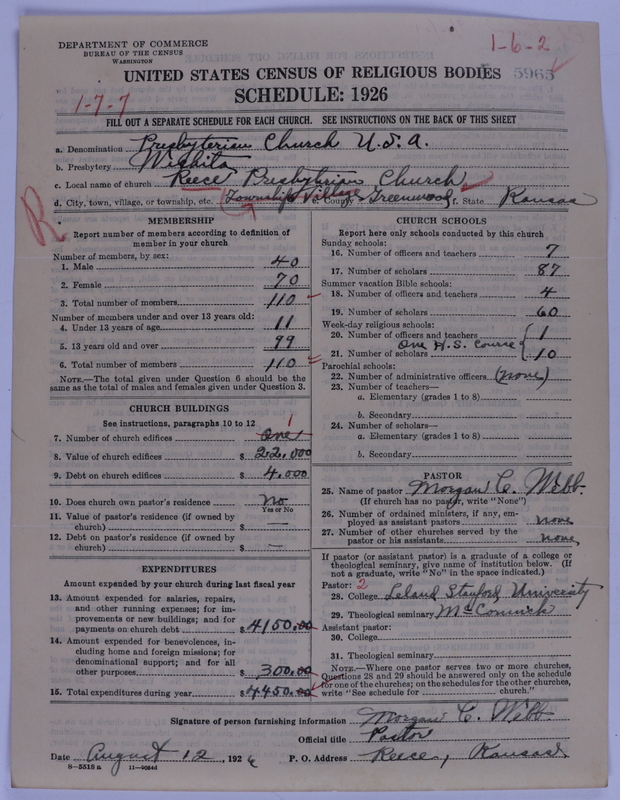 DEPARTMENT OF COMMERCE
BUREAU OF THE CENSUS
WASHINGTON
1-6-2
UNITED STATES CENSUS OF RELIGIOUS BODIES 5965
SCHEDULE: 1926
1-7-7
FILL OUT A SEPARATE SCHEDULE FOR EACH CHURCH. SEE INSTRUCTIONS ON THE BACK OF THIS SHEET
a. Denomination Presbyterian Church U.S.A.
b. Presbytery Wichita
c. Local name of church Reece Presbyterian Church
d. City, town, village, or township, etc. (Township) Village e. County Greenwood f. State Kansas
R
MEMBERSHIP
Report number of members according to definition of
member in your church
Number of members, by sex:
1. Male 40
2. Female 70
3. Total number of members 110
Number of members under and over 13 years old:
4. Under 13 years of age 11
5. 13 years old and over 99
6. Total number of members 110
NOTE.—The total given under Question 6 should be
same as the total of males and females given under Question 3.
CHURCH BUILDINGS
See instructions, paragraphs 10 to 12
7. Number of church edifices One 1
8. Value of church edifices $ 22.000
9. Debt on church edifices $ 4.000
10. Does church own pastor's residence No
Yes or No
11. Value of pastor's residence (if owned by
church) $ —
12. Debt on pastor's residence (if owned by
church) $ —
EXPENDITURES
Amount expended by your church during last fiscal year
13. Amount expended for salaries, repairs,
and other running expenses; for im-
provements or new buildings; and for
payments on church debt $ 4150.00
14. Amount expended for benevolences, in-
cluding home and foreign missions; for
denominational support; and for all
other purposes $ 300.00
15. Total expenditures during year $ 4450.00
CHURCH SCHOOLS
Report here only schools conducted by this church
Sunday schools:
16. Number of officers and teachers 7
17. Number of scholars 87
Summer vacation Bible schools:
18. Number of officers and teachers 4
19. Number of scholars 60
Week-day religious schools:
20. Number of officers and teachers 1
One H.S. Course
21. Number of scholars 10
Parochial schools:
22. Number of administrative officers (none)
23. Number of teachers—
a. Elementary (grades 1 to 8)
b. Secondary
24. Number of scholars—
a. Elementary (grades 1 to 8)
b. Secondary
PASTOR
25. Name of pastor Morgan C. Webb.
(If church has no pastor, write "None")
26. Number of ordained ministers, if any, em-
ployed as assistant pastors none
27. Number of other churches served by the
pastor or his assistants none
If pastor (or assistant pastor) is a graduate of a college or
theological seminary, give name of institution below. (If
not a graduate, write "No" in the space indicated.)
Pastor: 2
28. College Leland Stanford University
29. Theological seminary McCormick
Assistant pastor:
30. College
31. Theological seminary
NOTE.—Where one pastor serves two or more churches,
Questions 28 and 29 should be answered only on the schedule
for one of the churches; on the schedules for the other churches,
write "See schedule for church."
Signature of person furnishing information Morgan C. Webb.
Official title Pastor
Date August 12, 1926 P. O. Address Reece, Kansas
8—5518 a 11—9084d